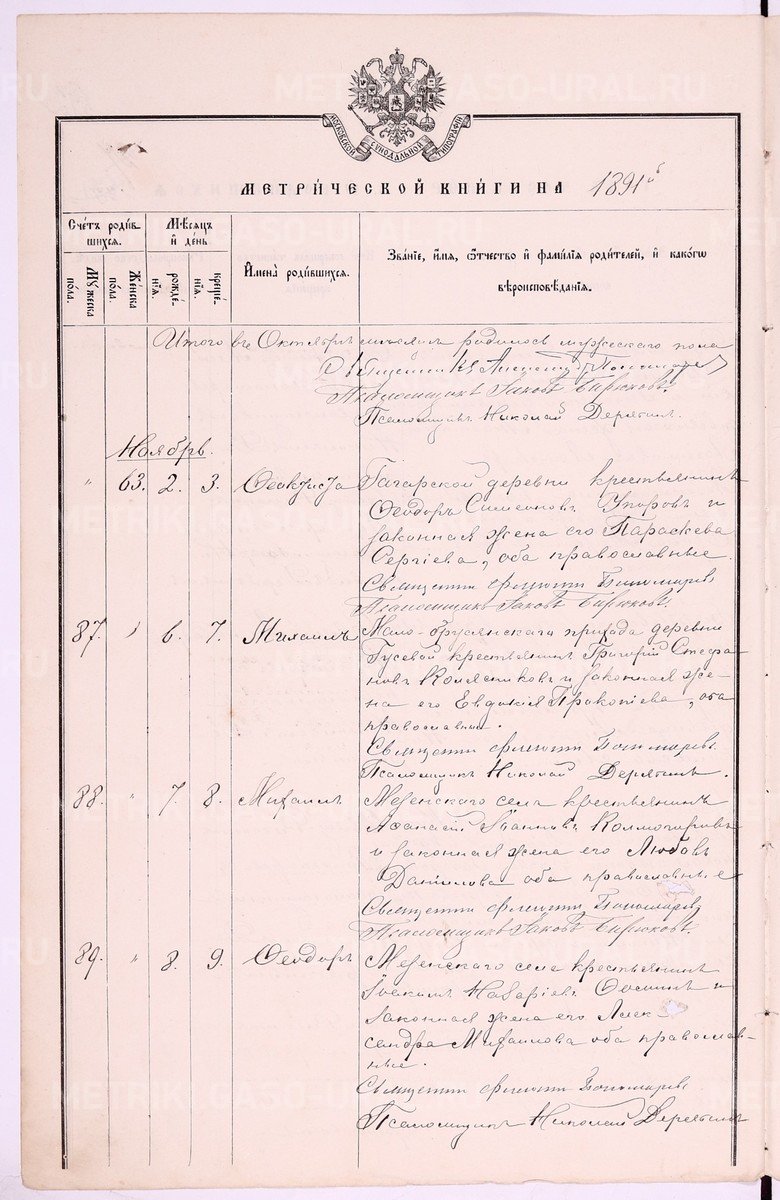 МОСКОВСКОЙ СѴНОДАЛЬНОЙ ТИПОГРАФІИ
МЕТРИ́ЧЕСКОЙ КНИ́ГИ НА 1891й
Сче́тъ роди́вшихся.
Мѣ́сяцъ и҆ де́нь.
И҆мена̀ роди́вшихся.
Зва́нїе, и҆́мя, ѻ҆́тчество и҆ фами́лїя роди́телей, и҆ како́гѡ
вѣроисповѣ́данїя.
Мꙋ́жеска по́ла.
Же́нска по́ла.
рожде́нїѧ.
креще́нїѧ.
Итого въ Октябрѣ месяцѣ родилось мужескаго пола
Священникъ
Псаломщикъ Іаковъ Бирюковъ.
Псаломщикъ Николай Дерягинъ.
Ноябрь.
" 63. 2. 3. Ѳеоктиста Гагарской деревни крестьянинъ
Ѳеодоръ Симеоновъ Упоровъ и
законная жена его Параскева
Сергіева, оба православные.
Священникъ Пономаревъ
Псаломщикъ Іаковъ Бирюковъ.
87. " 6. 7. Михаилъ Мало-брусянскаго прихода деревни
Гусевой крестьянинъ Григорій Стефа
новъ Колясниковъ и законная же-
на его Евдокія Прокопіева, оба
православные.
Священникъ Пономаревъ.
Псаломщикъ Николай Дерягинъ.
88. " 7. 8. Михаилъ Мезенскаго села крестьянинъ
Аѳанасій Іоанновъ Колмогоровъ
и законная жена его Любовь
Даніилова оба православные
Священникъ Пономаревъ
Псаломщикъ Іаковъ Бирюковъ.
89. " 8. 9. Ѳеодоръ Мезенскаго села крестьянинъ
Іоакимъ Назаріевъ и
законная жена его Алек
сандра Михаилова оба православ-
ные.
Священникъ Пономаревъ
Псаломщикъ Николай Дерягинъ